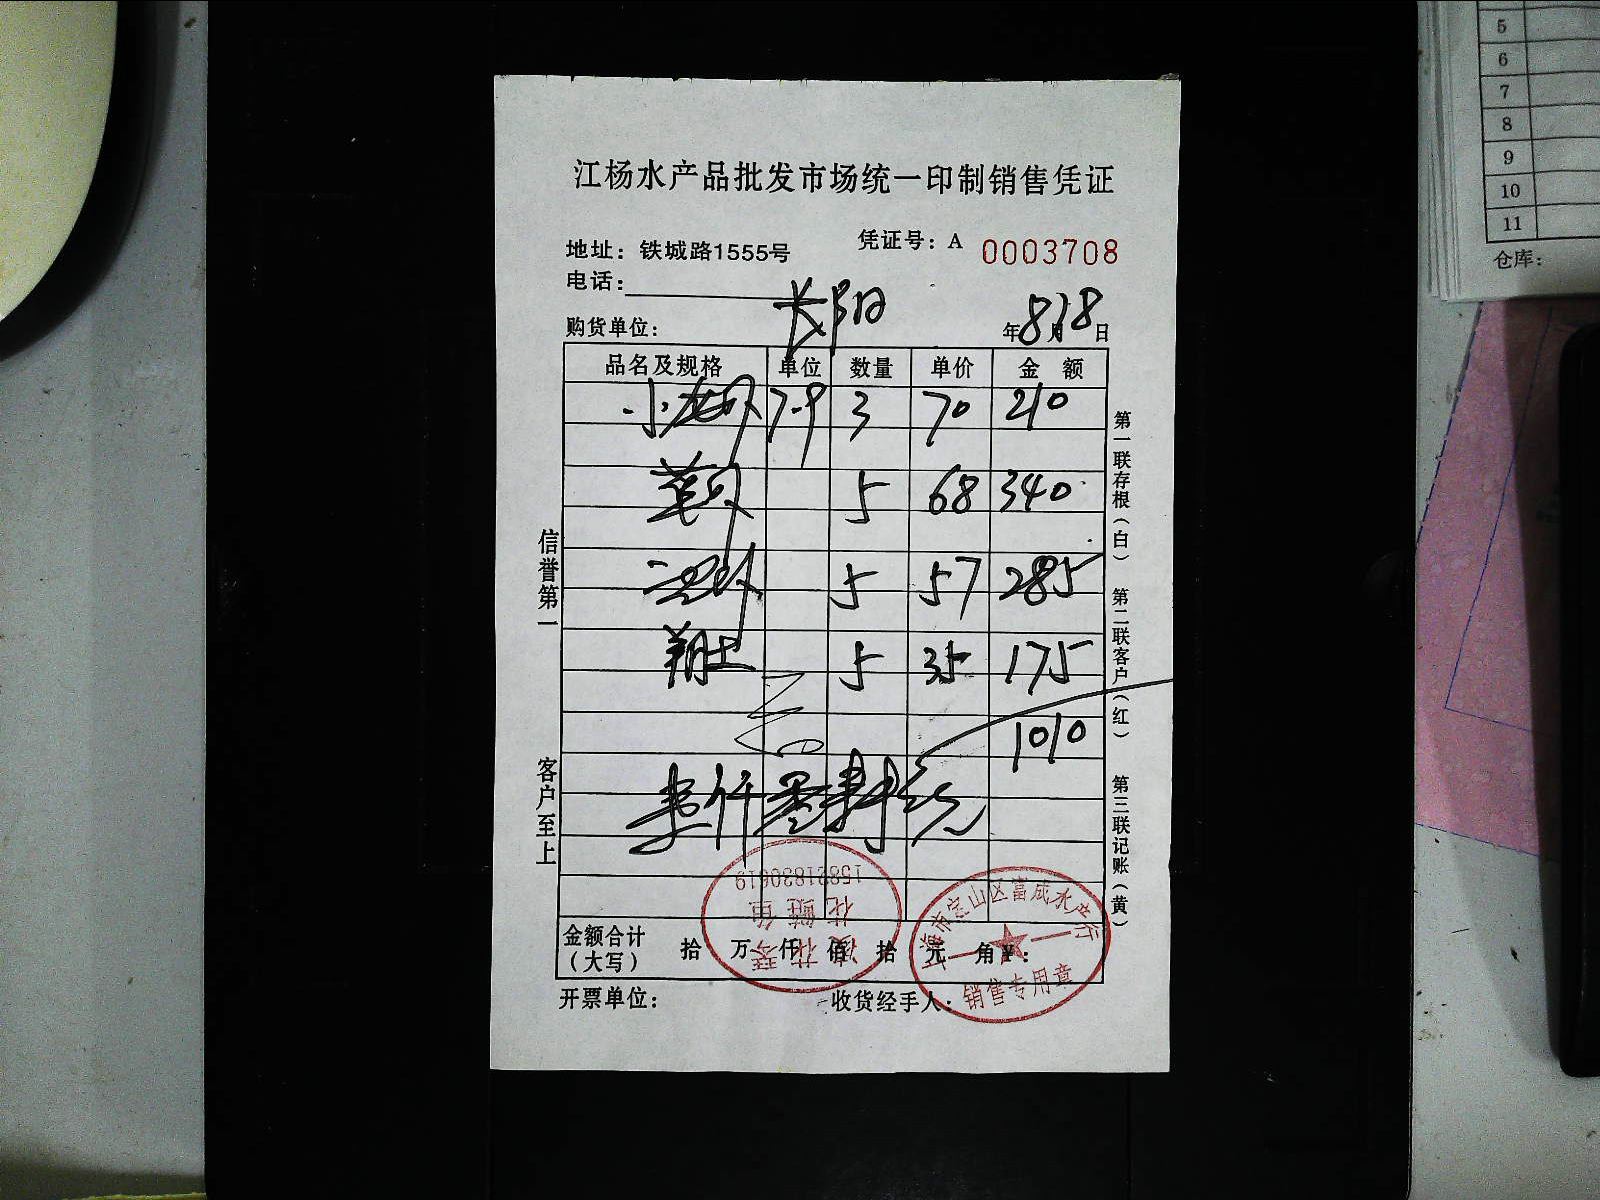 江杨水产品批发市场统一印制销售凭证
地址：铁城路1555号
凭证号：A 0003708
电话：
购货单位： 长阳
年8月18日
品名及规格 单位 数量 单价 金 额
小龙 7-9 3 70 210
5 68 340
5 57 285
5 35 175
1010
壹仟零 元
金额合计（大写） 拾 万 仟 佰 拾 元 角 ¥：
开票单位： 收货经手人：
信誉第一
客户至上
第一联存根（白） 第二联客户（红） 第三联记账（黄）
15821830619
花鲢鱼
上海市宝山区富成水产行
销售专用章
5
6
7
8
9
10
11
仓库：